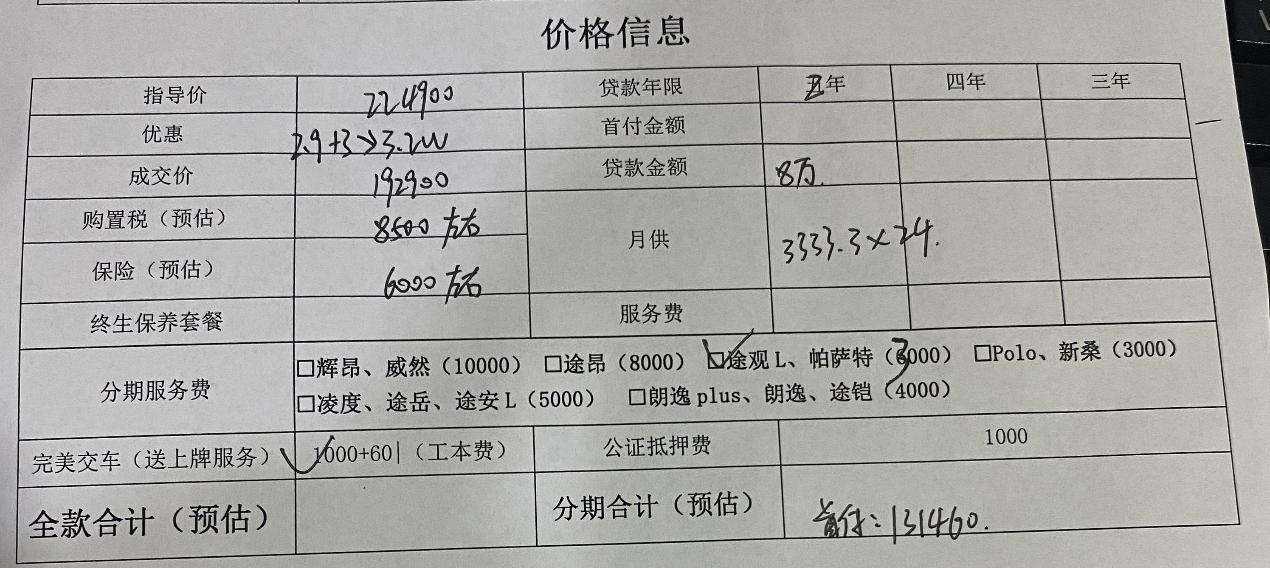 价格信息
指导价 224900 贷款年限 五年 四年 三年
优惠 2.9+3→3.2W 首付金额
成交价 192900 贷款金额 8万.
购置税（预估） 8500左右 月供 3333.3×24.
保险（预估） 6000左右
终生保养套餐 服务费
分期服务费 □辉昂、威然（10000） □途昂（8000） □途观L、帕萨特（3000） □Polo、新桑（3000）
□凌度、途岳、途安L（5000） □朗逸plus、朗逸、途铠（4000）
完美交车（送上牌服务） 1000+60|（工本费） 公证抵押费 1000
全款合计（预估） 分期合计（预估） 首付：131460.